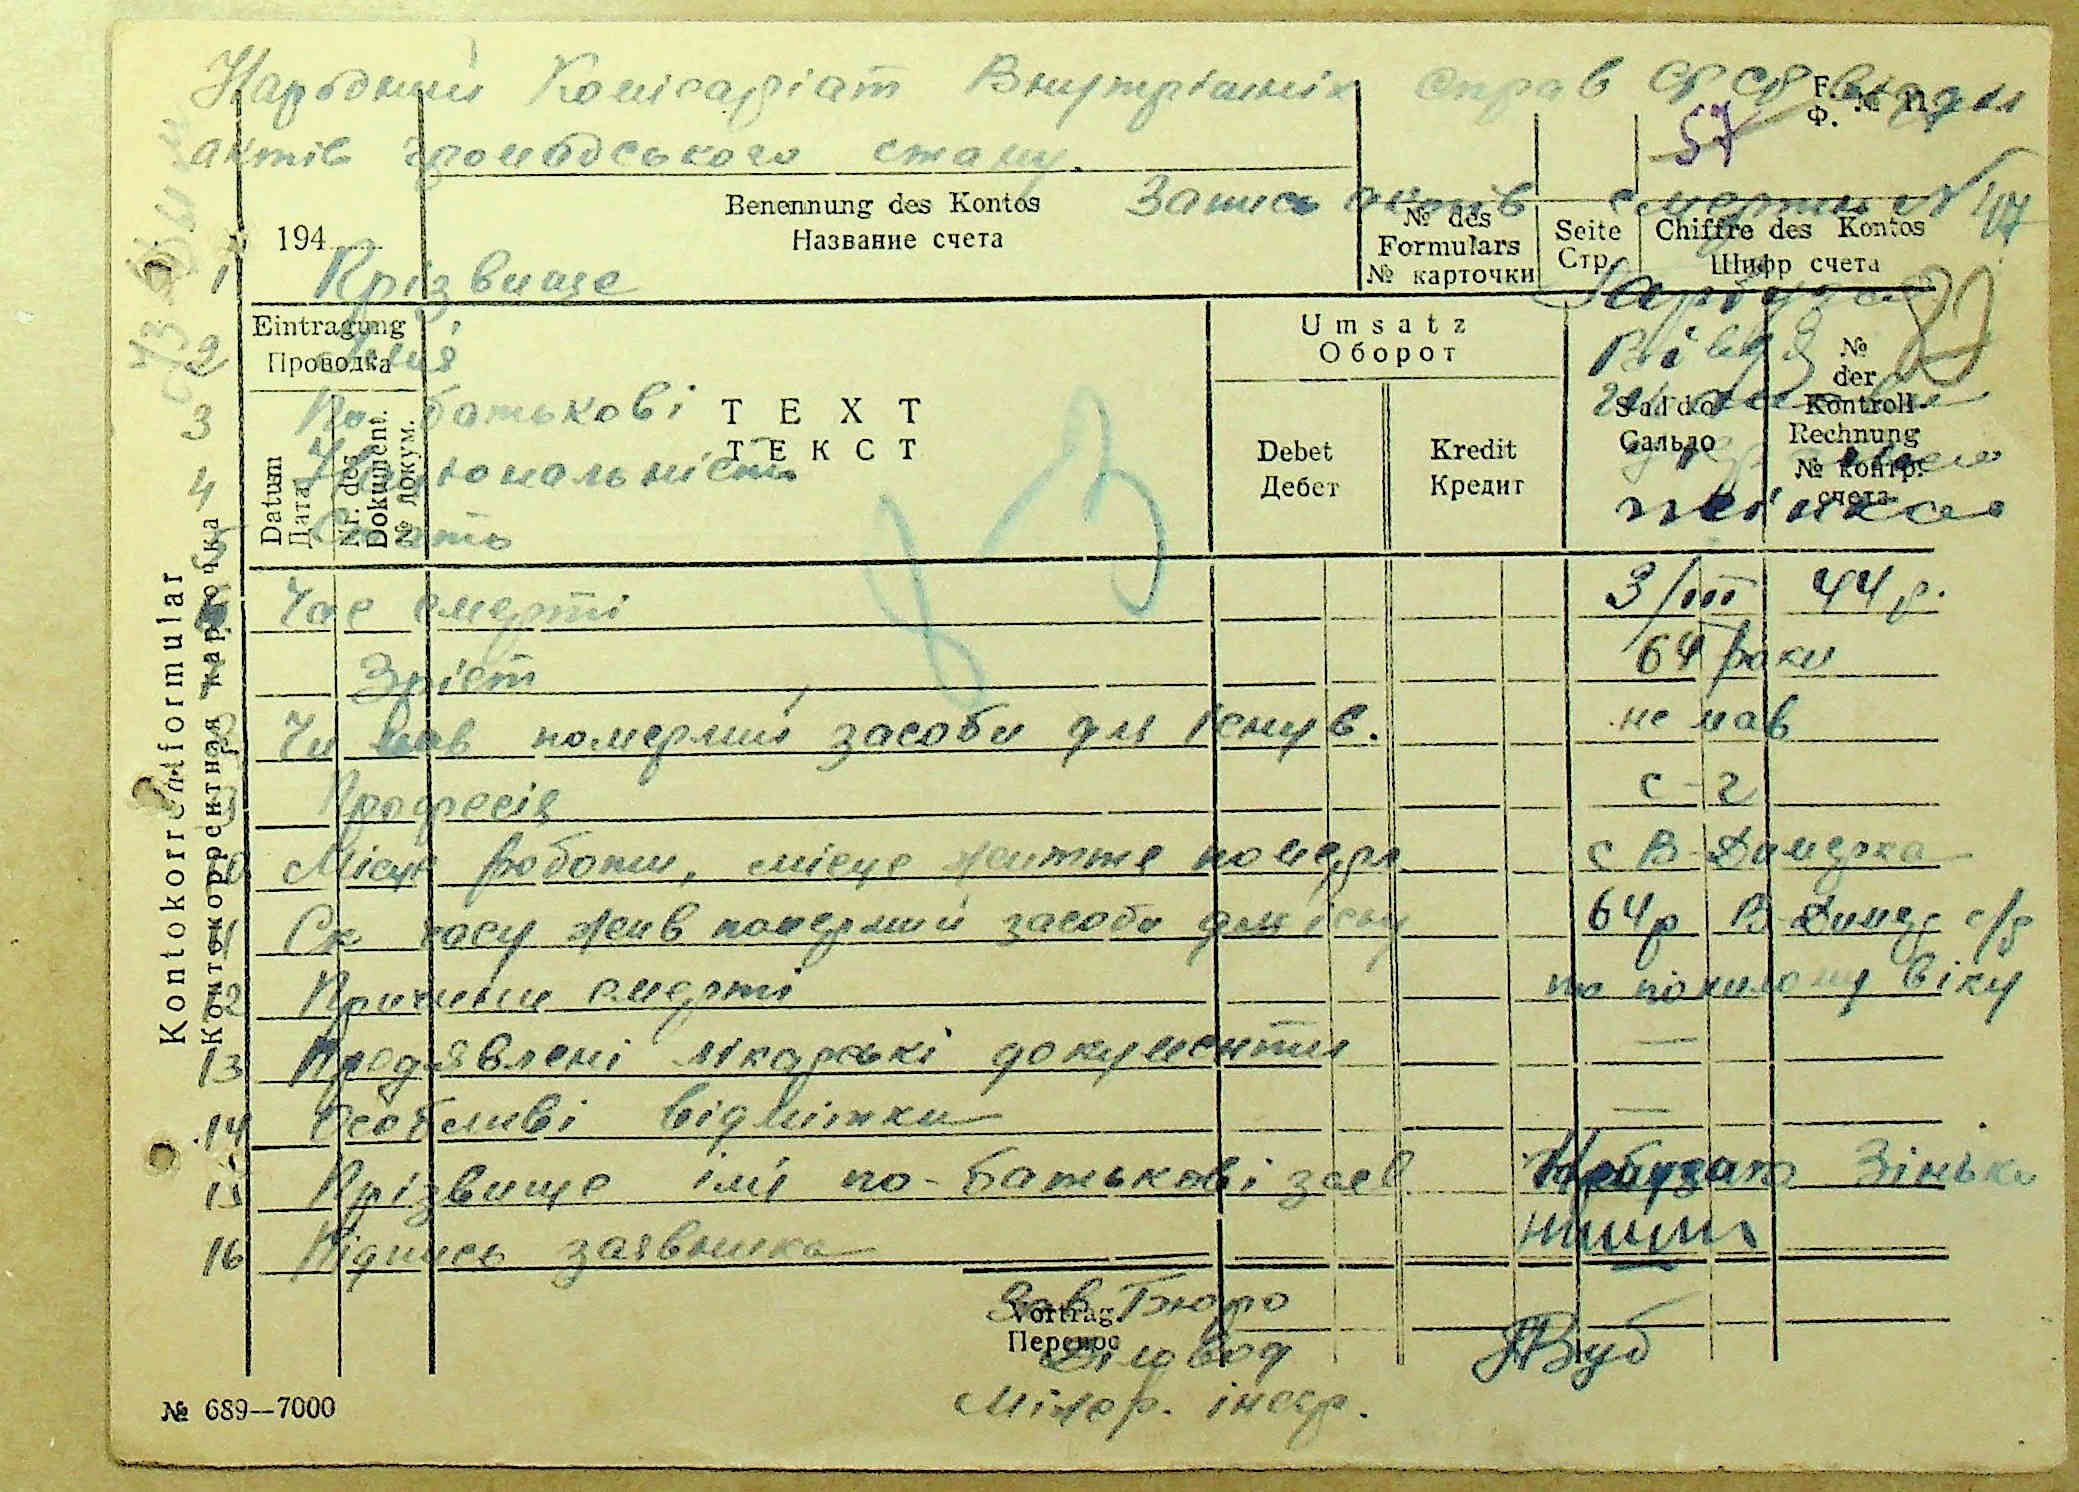 Народний Комісаріат Внутрішніх справ СРСР відділ
F. № 11
Ф.
57
актів громадського стану.
Benennung des Kontos
Название счета
Запис актів смерти №
194
№ des Formulars
№ карточки
Seite
Стр.
Chiffre des Kontos
Шифр счета
1 Прізвище
Eintragung
Проводка
Umsatz
Оборот
2 Імя
3 По батькові
TEXT
ТЕКСТ
Datum
Дата
Nr. des Dokument.
№ докум.
Debet
Дебет
Kredit
Кредит
Saldo
Сальдо
№ der Kontroll-Rechnung
№ контр. счета
4 Національність
5 Стать жінка
6 Час смерті 3/III 44 р.
7 Зріст 64 роки
8 Чи мав померлий засоби для існув. не мав
9 Професія с-г
10 Місце роботи, місце життя померл с В-Димерка
11 Ск часу жив померлий засоби для існу 64 р В-Димер с/р
12 Причини смерті по похилому віку
13 Предявлені лікарські документи —
14 Особливі відмітки —
15 Прізвище імя по-батькові заяв. Зінька
16 Підпись заявника
Зав. Бюро
Vortrag
Перенос
Діловод
Міліц. інсп.
Kontokorrentformular
Контокоррентная карточка
№ 689—7000